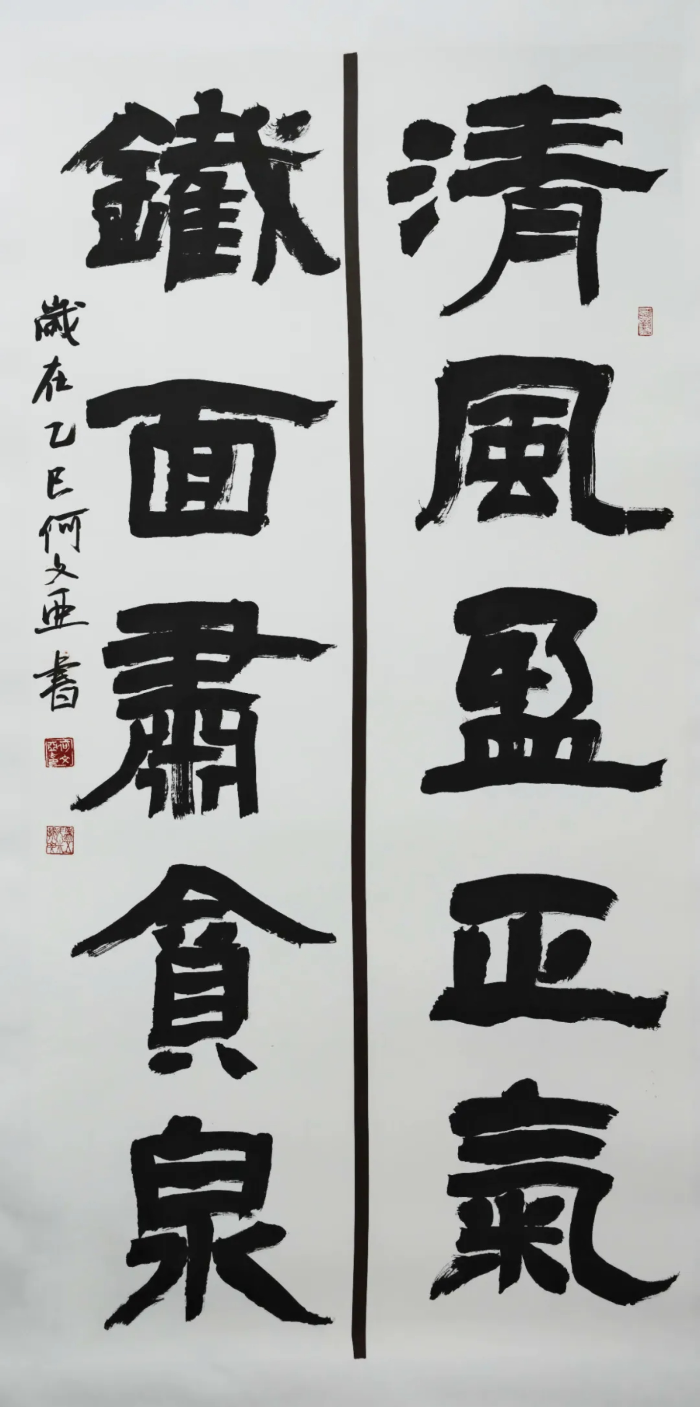 清風盈正氣
鐵面肅貪泉
歲在乙巳何文亜書